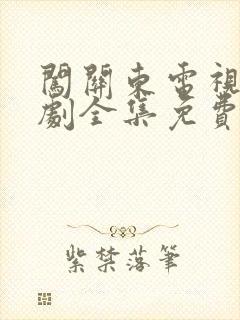 闖關東電視
劇全集免費
紫禁落筆